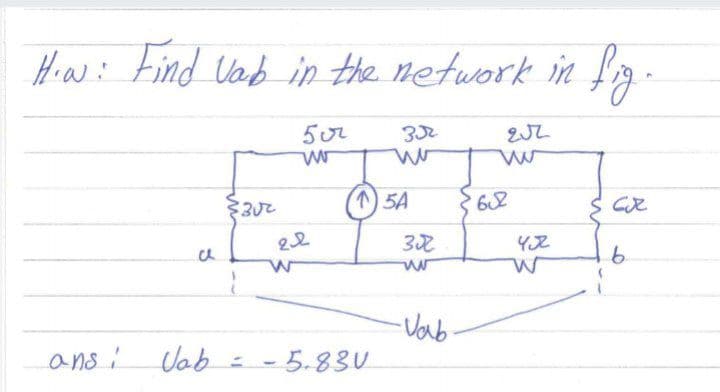 H.w: Find Vab in the network in fig.
5Ω 3Ω 2Ω
3Ω 5A 6Ω 6Ω
a 2Ω 3Ω 4Ω b
Vab
ans: Vab = -5.83V